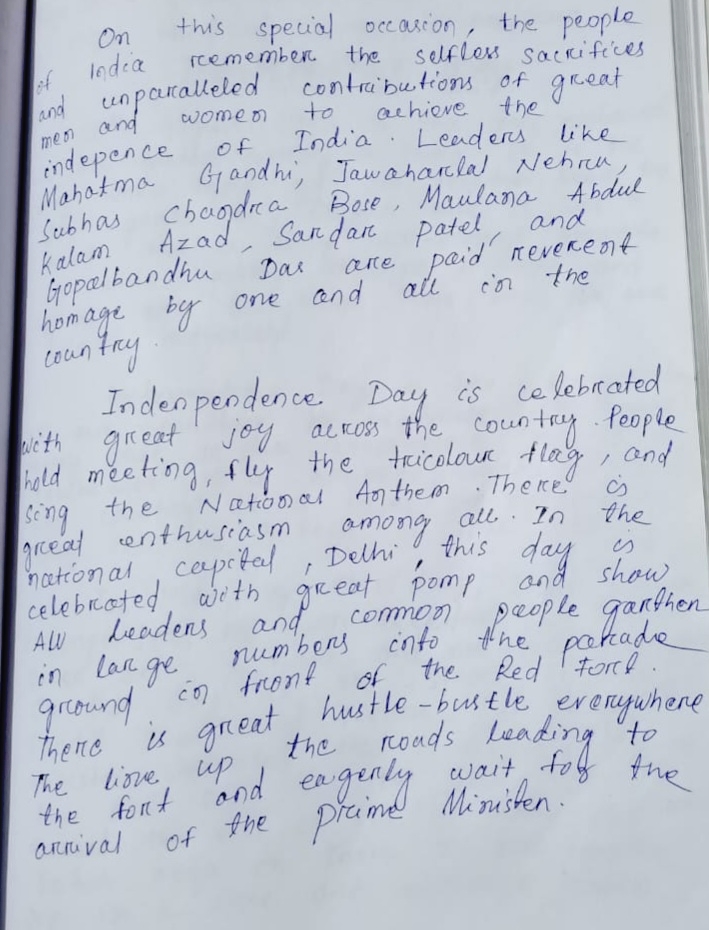 On this special occasion, the people
of India remember the selfless sacrifices
and unparalleled contributions of great
men and women to achieve the
indepence of India. Leaders like
Mahatma Gandhi, Jawaharlal Nehru,
Subhas Chandra Bose, Maulana Abdul
Kalam Azad, Sardar Patel, and
Gopalbandhu Das are paid reverent
homage by one and all in the
country.
Indenpendence Day is celebrated
with great joy across the country. People
hold meeting, fly the tricolour flag, and
sing the National Anthem. There is
great enthusiasm among all. In the
national capital, Delhi, this day is
celebrated with great pomp and show
All leaders and common people garther
in large numbers into the parade
ground in front of the Red Fort.
There is great hustle-bustle everywhere
The line up the roads leading to
the fort and eagerly wait for the
arrival of the Prime Minister.